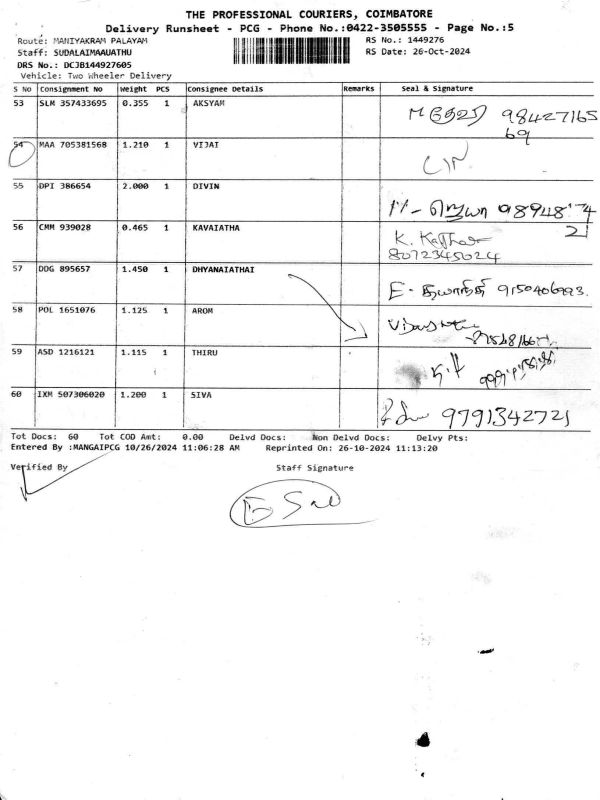 THE PROFESSIONAL COURIERS, COIMBATORE
Delivery Runsheet - PCG - Phone No.:0422-3505555 - Page No.:5
Route: MANIYAKRAM PALAYAM RS No.: 1449276
Staff: SUDALAIMAAUATHU RS Date: 26-Oct-2024
DRS No.: DCJB144927605
Vehicle: Two Wheeler Delivery
S No Consignment No Weight PCS Consignee Details Remarks Seal & Signature
53 SLM 357433695 0.355 1 AKSYAM 98427165
69
54 MAA 705381568 1.210 1 VIJAI
55 DPI 386654 2.000 1 DIVIN
21
56 CMM 939028 0.465 1 KAVAIATHA K.
8072345024
57 DDG 895657 1.450 1 DHYANAIATHAI E-
58 POL 1651076 1.125 1 AROM
59 ASD 1216121 1.115 1 THIRU
60 IXM 507306020 1.200 1 SIVA 9791342721
Tot Docs: 60 Tot COD Amt: 0.00 Delvd Docs: Non Delvd Docs: Delvy Pts:
Entered By :MANGAIPCG 10/26/2024 11:06:28 AM Reprinted On: 26-10-2024 11:13:20
Verified By Staff Signature